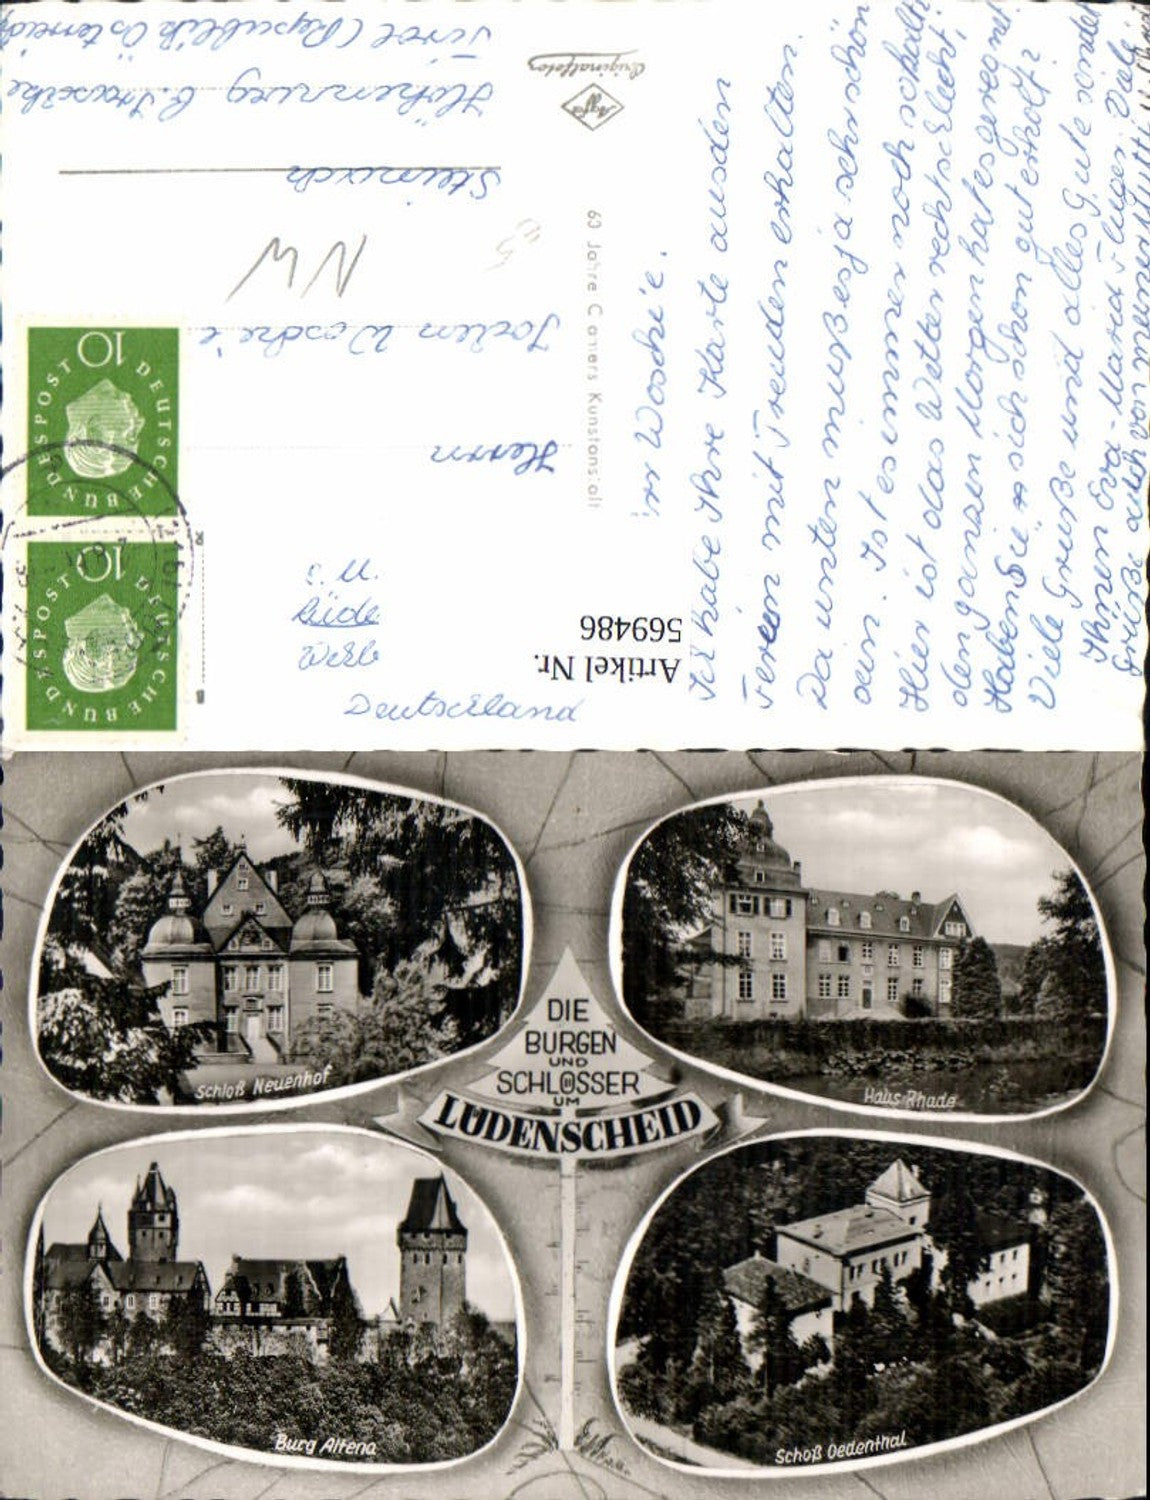 Ich habe Ihre Karte aus den
Ferien mit Freuden erhalten.
Da unten muß es ja sehr schön
sein. Ist es immer noch so kalt?
Hier ist das Wetter recht schlecht,
den ganzen Morgen hat es geregnet.
Haben Sie sich schon gut erholt?
Viele Grüße und alles Gute sendet
Ihnen Eva-Maria
Grüße auch von meiner Mutti
60 Jahre Kunstanstalt
Agfa
Originalfoto
Herrn
Jochen
NW
Steinach
Tirol (Republik Österreich)
Deutschland
Artikel Nr.
569486
10
DEUTSCHE BUNDESPOST
10
DEUTSCHE BUNDESPOST
Schloß Neuenhof
Haus Rhade
DIE
BURGEN
UND
SCHLÖSSER
UM
LÜDENSCHEID
Burg Altena
Schoß Oedenthal